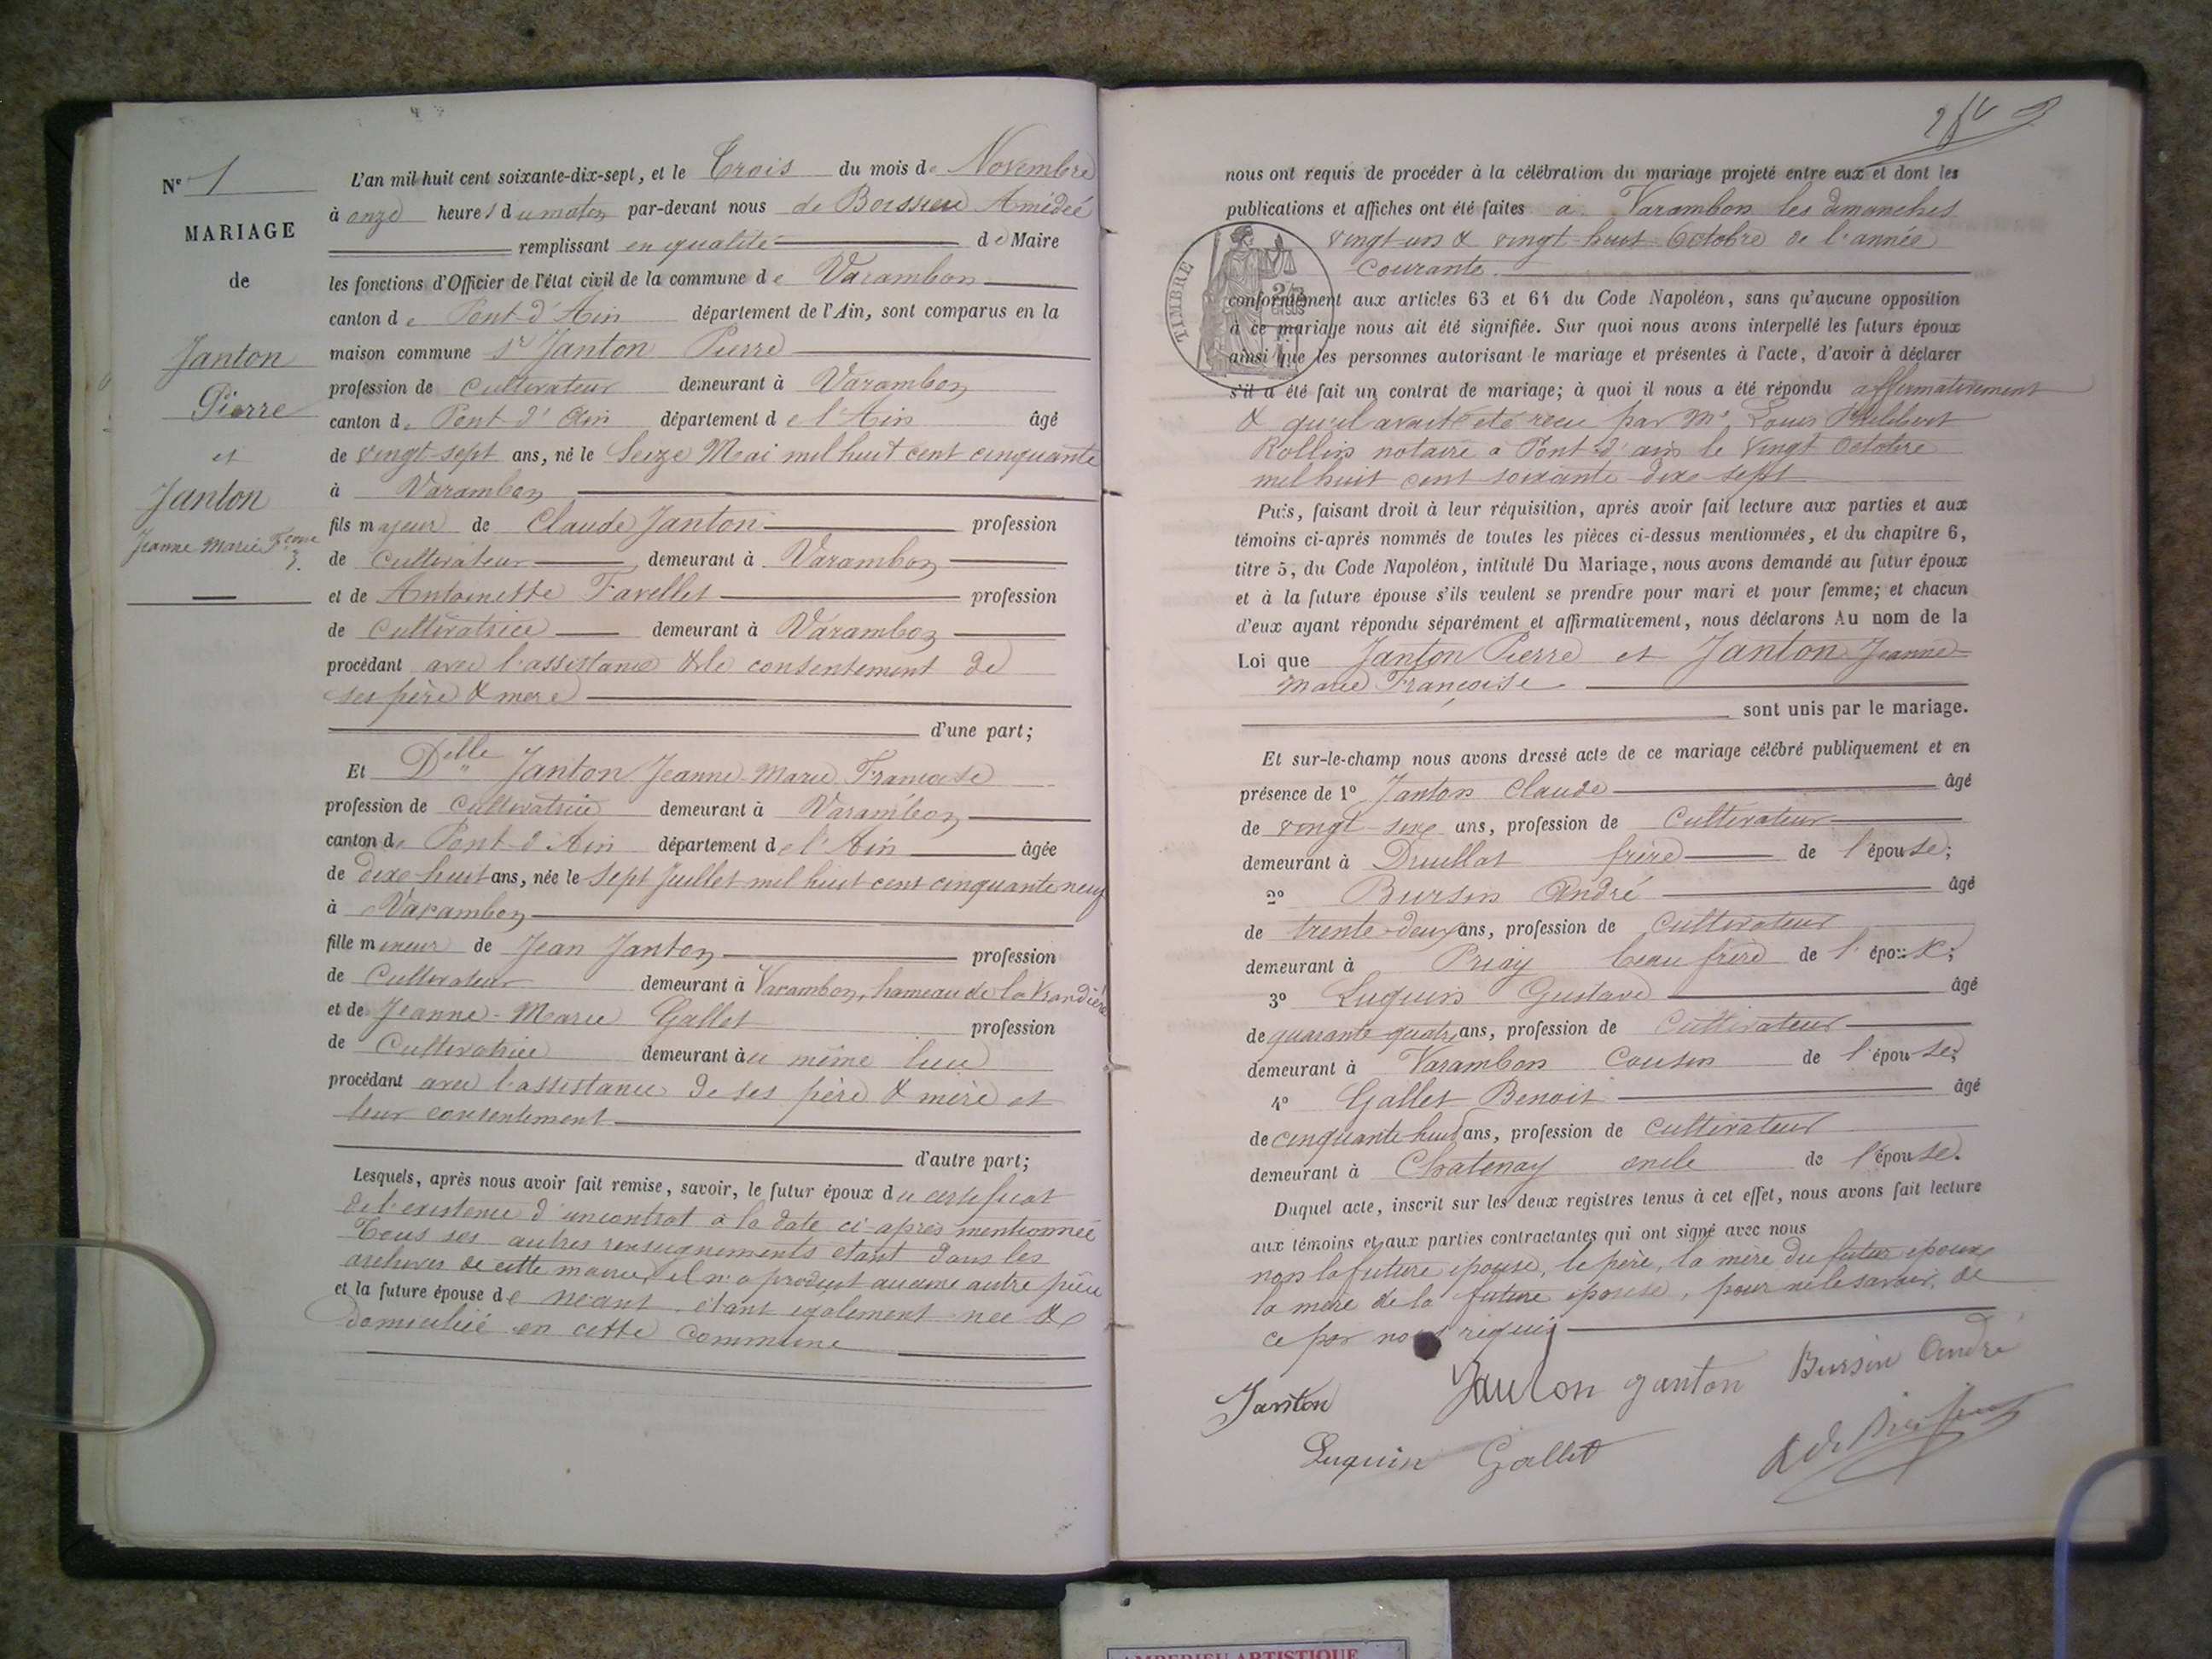 N° 1
MARIAGE
de
Janton
Pierre
et
Janton
Jeanne Marie Fçoise
L'an mil huit cent soixante-dix-sept, et le Trois du mois de Novembre
à onze heures du matin par-devant nous de Boissieu Amédée
remplissant en qualité de Maire
les fonctions d'Officier de l'état civil de la commune de Varambon
canton de Pont-d'Ain département de l'Ain, sont comparus en la
maison commune Sr Janton Pierre
profession de cultivateur demeurant à Varambon
canton de Pont d'Ain département de l'Ain âgé
de vingt-sept ans, né le Seize Mai mil huit cent cinquante
à Varambon
fils majeur de Claude Janton profession
de cultivateur demeurant à Varambon
et de Antoinette Favellet profession
de cultivatrice demeurant à Varambon
procédant avec l'assistance & le consentement de
ses père & mère
d'une part;
Et Delle Janton Jeanne-Marie Francoise
profession de cultivatrice demeurant à Varambon
canton de Pont-d'Ain département de l'Ain âgée
de dixe huit ans, née le sept Juillet mil huit cent cinquante neuf
à Varambon
fille mineur de Jean Janton profession
de Cultivateur demeurant à Varambon, hameau de la
et de Jeanne-Marie Gallet profession
de Cultivatrice demeurant au même lieu
procédant avec l'assistance de ses père & mère et
leur consentement
d'autre part;
Lesquels, après nous avoir fait remise, savoir, le futur époux du certificat
de l'existence d'un contrat à la date ci-après mentionnée
Tous ses autres renseignements étant dans les
archives de cette mairie, il n'a produit aucune autre pièce
et la future épouse de néant, étant également née &
domiciliée en cette commune
nous ont requis de procéder à la célébration du mariage projeté entre eux et dont les
publications et affiches ont été faites à Varambon les dimanches
vingt-un & vingt-huit Octobre de l'année
courante
TIMBRE
conformément aux articles 63 et 64 du Code Napoléon, sans qu'aucune opposition
à ce mariage nous ait été signifiée. Sur quoi nous avons interpellé les futurs époux
ainsi que les personnes autorisant le mariage et présentes à l'acte, d'avoir à déclarer
s'il a été fait un contrat de mariage; à quoi il nous a été répondu affirmativement
& qu'il avait été reçu par Me Louis Philibert
Rollin notaire à Pont-d'ain le vingt Octobre
mil huit cent soixante dixe sept
Puis, faisant droit à leur réquisition, après avoir fait lecture aux parties et aux
témoins ci-après nommés de toutes les pièces ci-dessus mentionnées, et du chapitre 6,
titre 5, du Code Napoléon, intitulé Du Mariage, nous avons demandé au futur époux
et à la future épouse s'ils veulent se prendre pour mari et pour femme; et chacun
d'eux ayant répondu séparément et affirmativement, nous déclarons Au nom de la
Loi que Janton Pierre et Janton Jeanne
Marie Françoise
sont unis par le mariage.
Et sur-le-champ nous avons dressé acte de ce mariage célébré publiquement et en
présence de 1° Janton Claude âgé
de vingt-sixe ans, profession de Cultivateur
demeurant à Druillat frère de l'épouse;
2° Bursin André âgé
de trente-deux ans, profession de Cultivateur
demeurant à Priay beau frère de l'épouse;
3° Luquin Gustave âgé
de quarante quatre ans, profession de Cultivateur
demeurant à Varambon Cousin de l'épouse;
4° Gallet Benoit âgé
de cinquante huit ans, profession de cultivateur
demeurant à Chatenay oncle de l'épouse.
Duquel acte, inscrit sur les deux registres tenus à cet effet, nous avons fait lecture
aux témoins et aux parties contractantes qui ont signé avec nous
non la future épouse, le père, la mère du futur époux
la mère de la future épouse, pour ne le savoir, de
ce par nous requis
Janton Janton Janton Bursin André
Luquin Gallet
AMBERIEU ARTISTIQUE